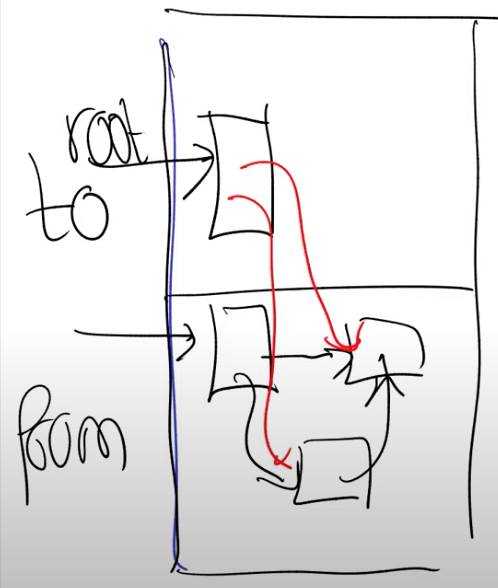 root
to
from